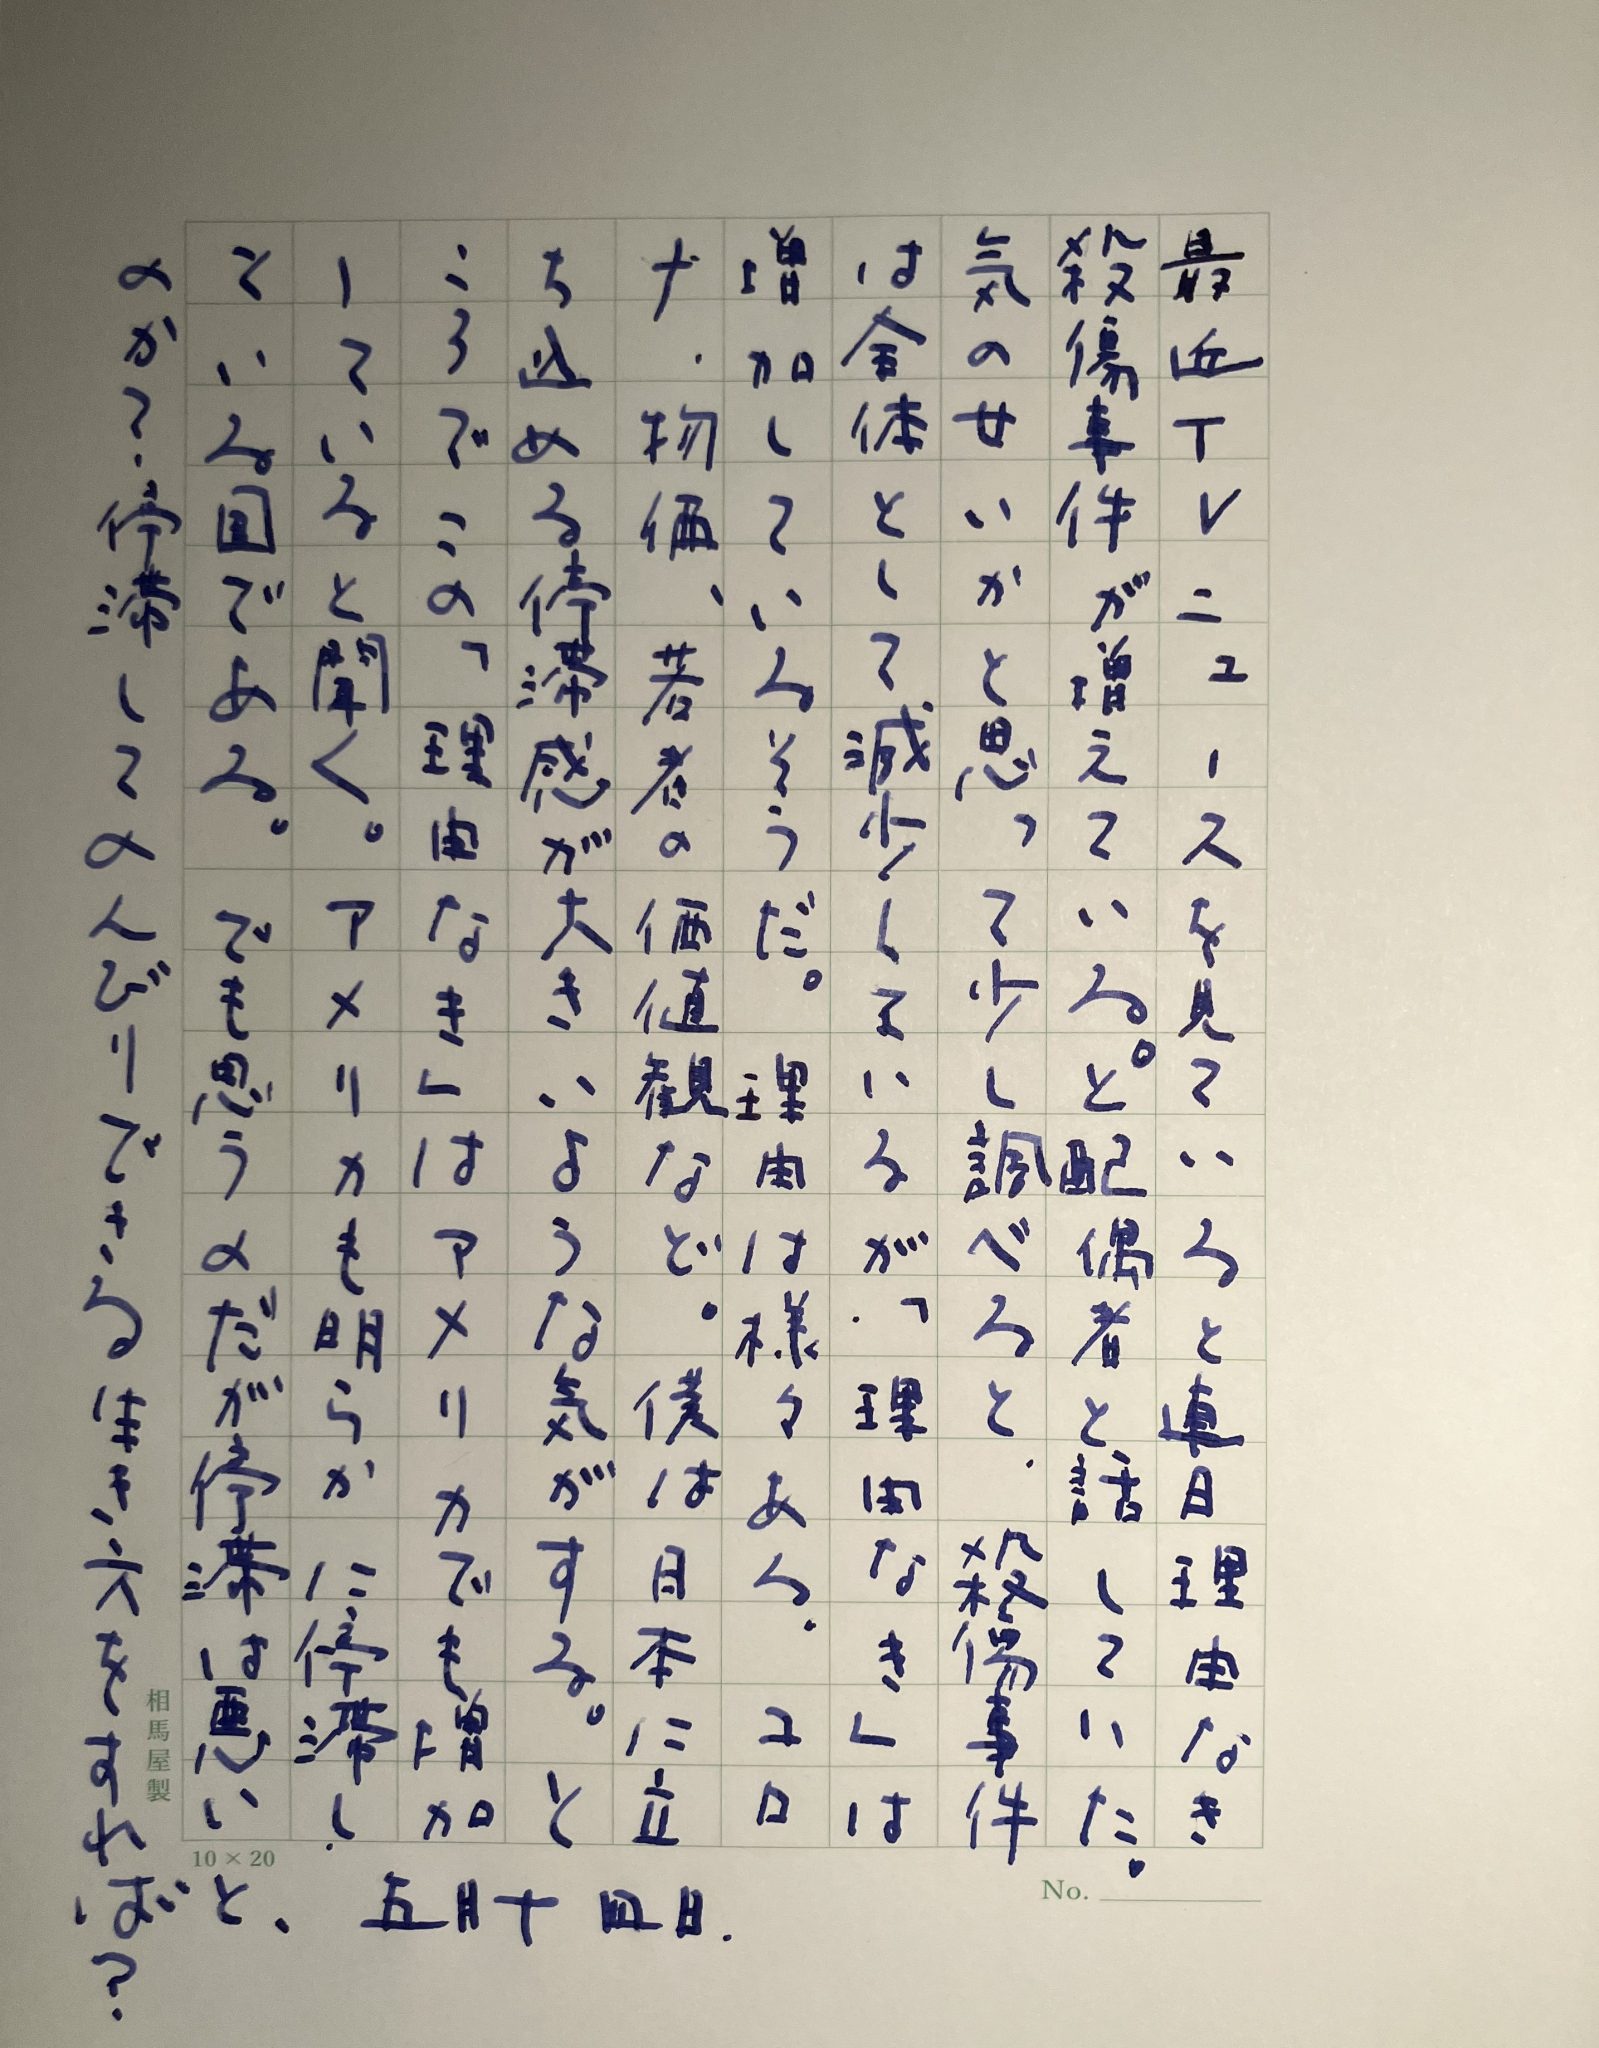 最近TVニュースを見ていると連日理由なき
殺傷事件が増えている。と配偶者と話していた。
気のせいかと思って少し調べると、殺傷事件
は全体として減少しているが、「理由なき」は
増加しているそうだ。理由は様々ある。コロ
ナ、物価、若者の価値観など。僕は日本に立
ち込める停滞感が大きいような気がする。と
ころでこの「理由なき」はアメリカでも増加
していると聞く。アメリカも明らかに停滞し
ている国である。でも思うのだが停滞は悪いと、
のか?停滞してのんびりできる生き方をすればば?
五月十四日.
相馬屋製
10×20
No.